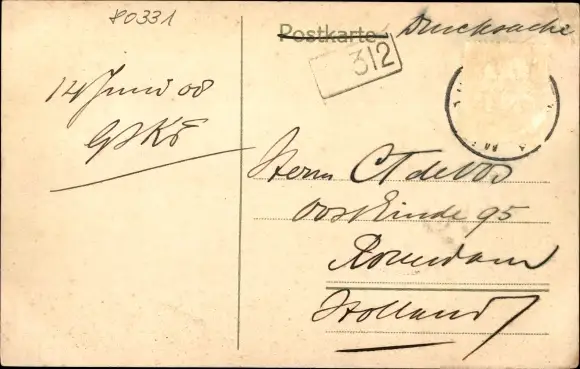 80331
Postkarte Drucksache
312
14 Juni 08
Herrn CT de Vos
Oost Einde 95
Holland